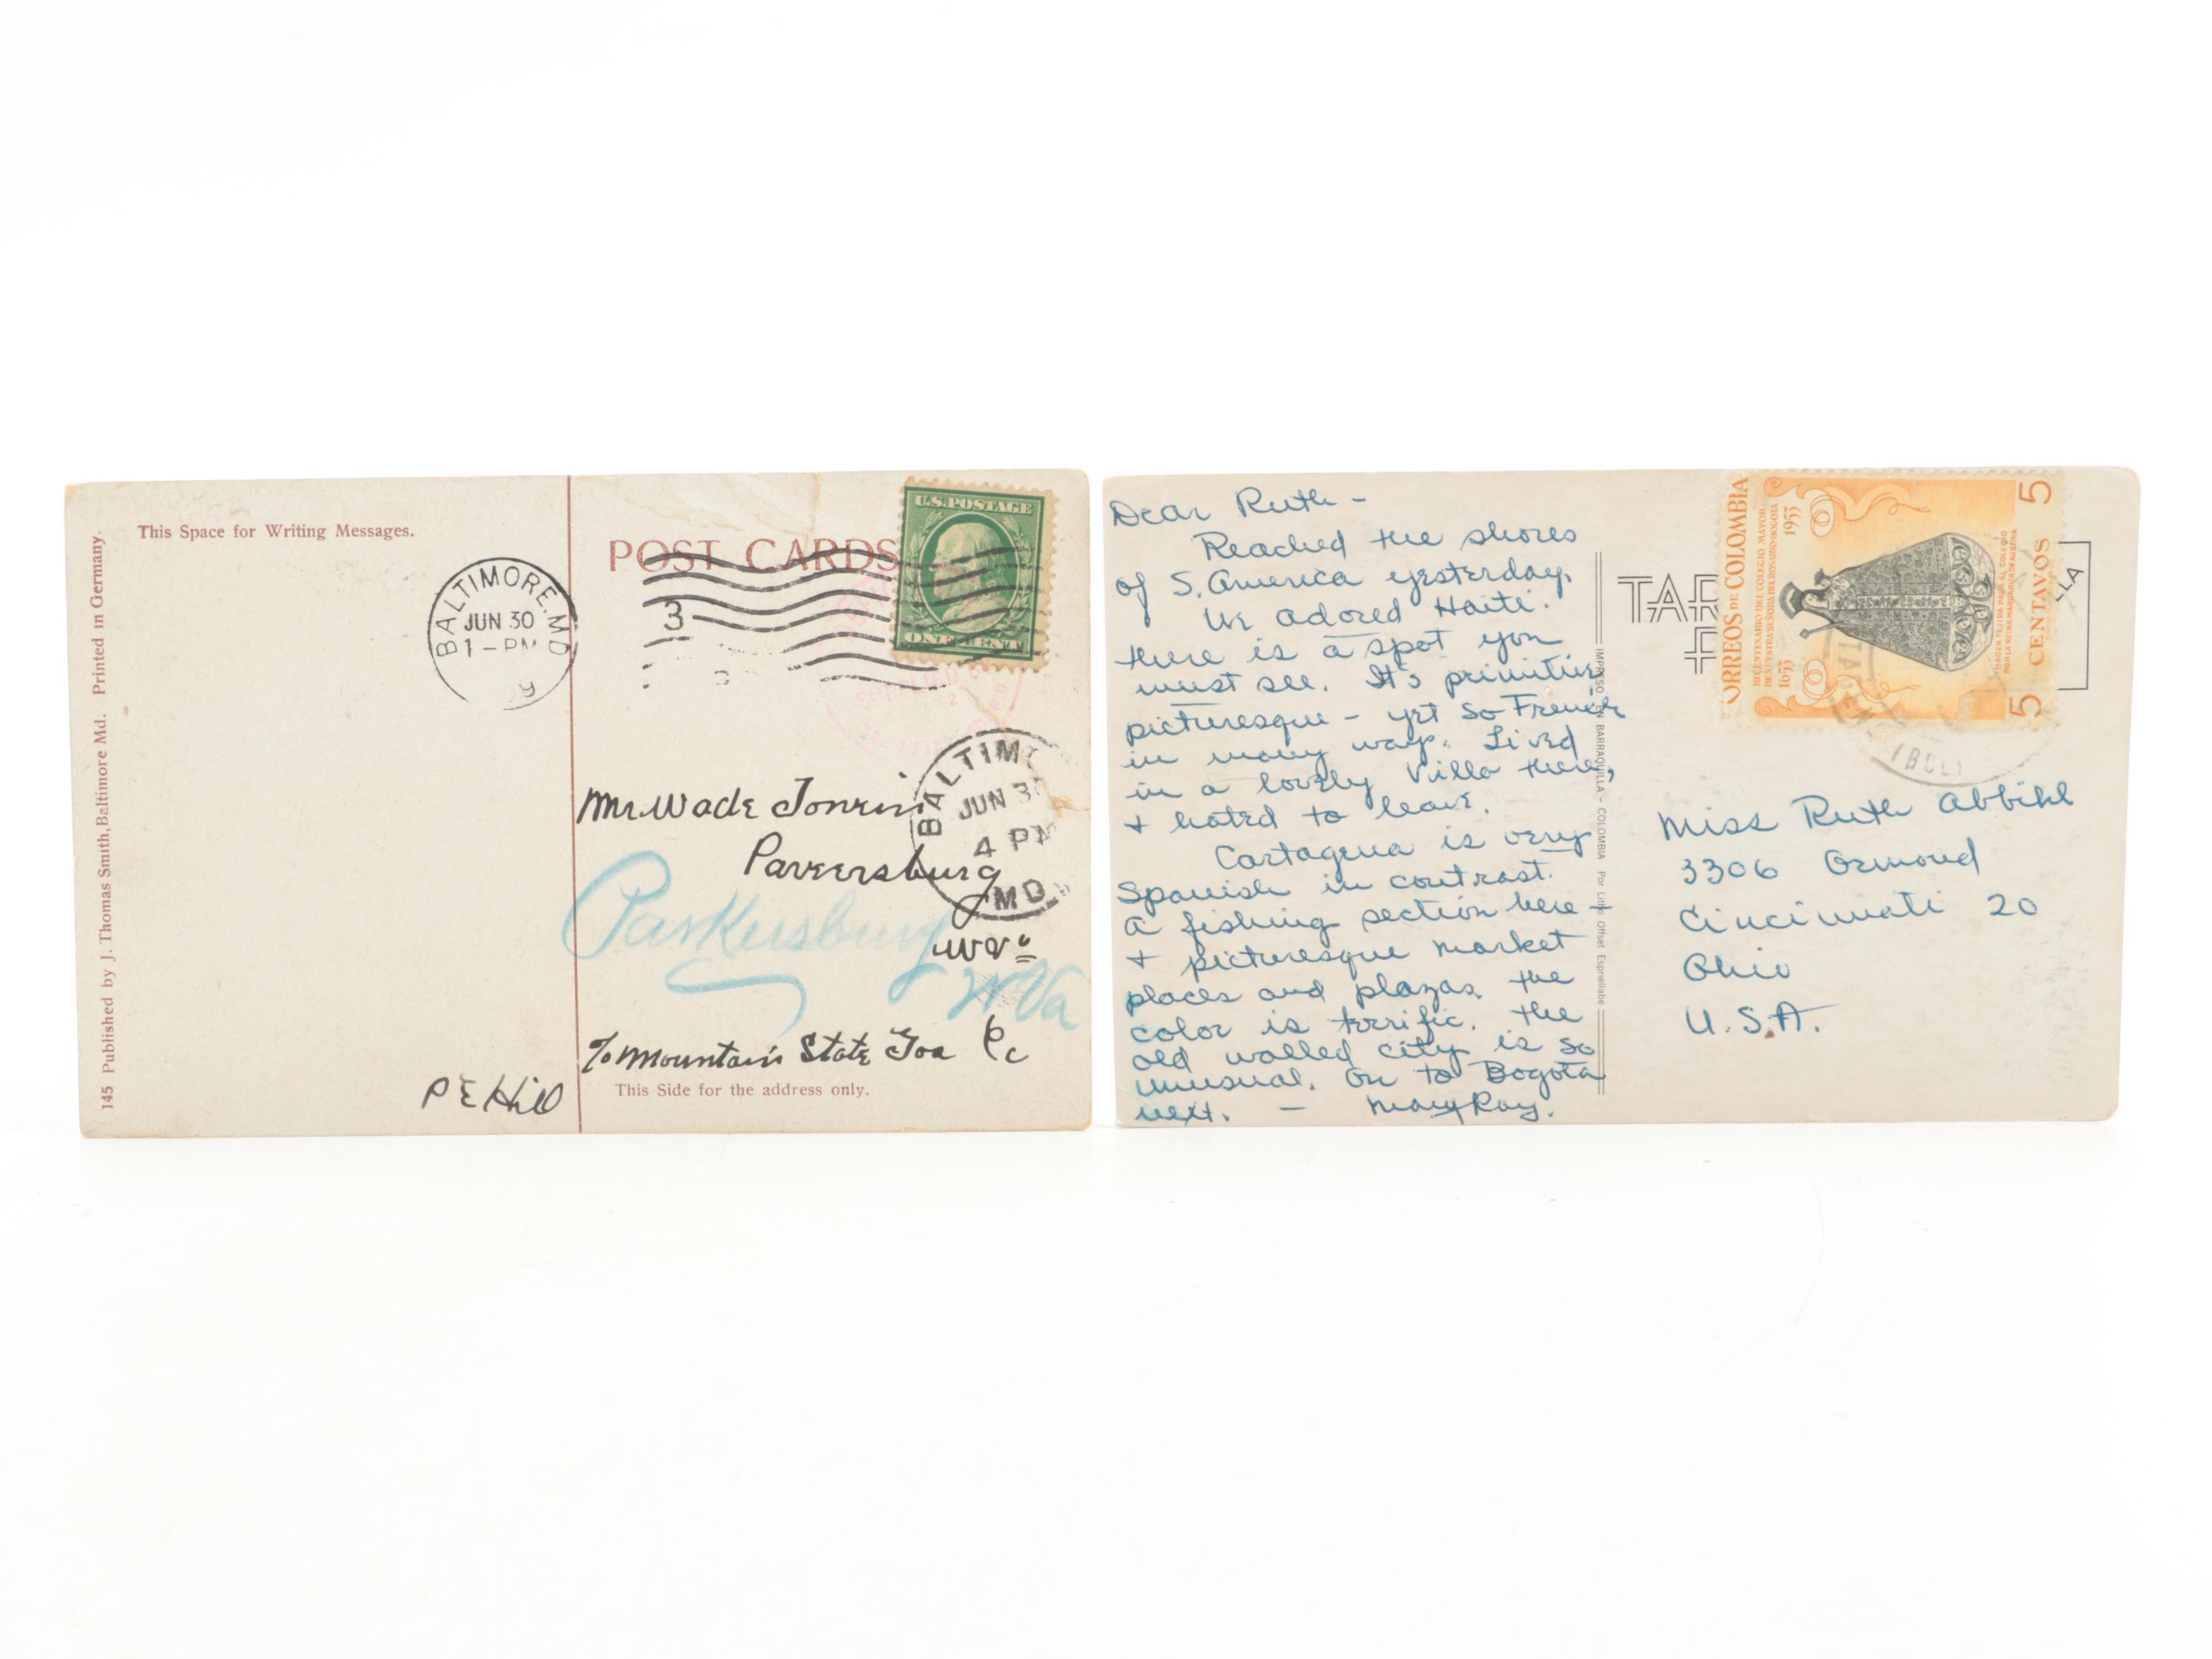 145 Published by J. Thomas Smith, Baltimore Md. Printed in Germany.
This Space for Writing Messages.
POST CARDS
BALTIMORE, MD
JUN 30
1-PM
9
3
U.S. POSTAGE
ONE CENT
BALTIM
JUN 3
4 PM
MD
Mr. Wade
Parkersburg
W Va
% Mountain State Co
This Side for the address only.
P E Hill
Dear Ruth -
Reached the shores
of S. America yesterday.
We adored Haiti.
there is a spot you
must see. It's primitive
picturesque - yet so French
in many ways. Lived
in a lovely Villa there,
+ hated to leave.
Cartagena is very
Spanish in contrast.
A fishing section here -
+ picturesque market
places and plazas. the
color is terrific. The
old walled city is so
unusual. On to Bogota
next. - Mary Ray.
IMPRESO EN BARRAQUILLA - COLOMBIA Por Litho Offset Espriellabe
TAR
P
LA
CORREOS DE COLOMBIA
III CENTENARIO DEL COLEGIO MAYOR
DE NUESTRA SEÑORA DEL ROSARIO-BOGOTA
1653 1953
IMAGEN TEJIDA PARA EL COLEGIO
POR LA REINA MARGARITA DE AUSTRIA
5 CENTAVOS 5
Miss Ruth Abbihl
3306 Ormond
Cincinnati 20
Ohio
U.S.A.